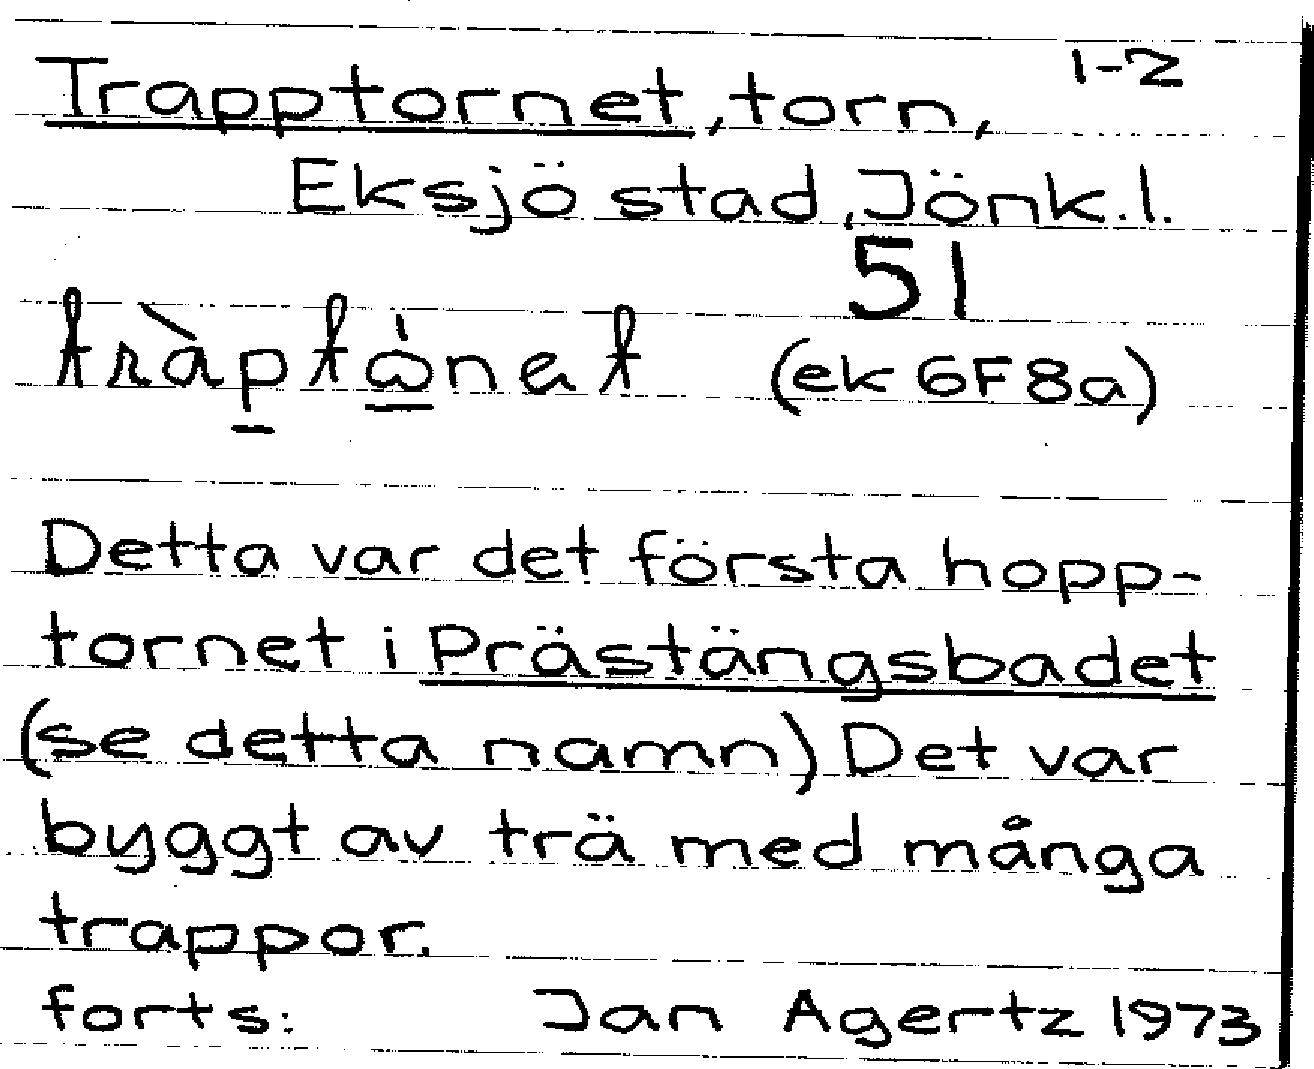 1-2
Trapptornet, torn,
Eksjö stad, Jönk.l.
51
(ek 6F8a)
Detta var det första hopp-
tornet i Prästängsbadet
(se detta namn) Det var
byggt av trä med många
trappor.
forts: Jan Agertz 1973